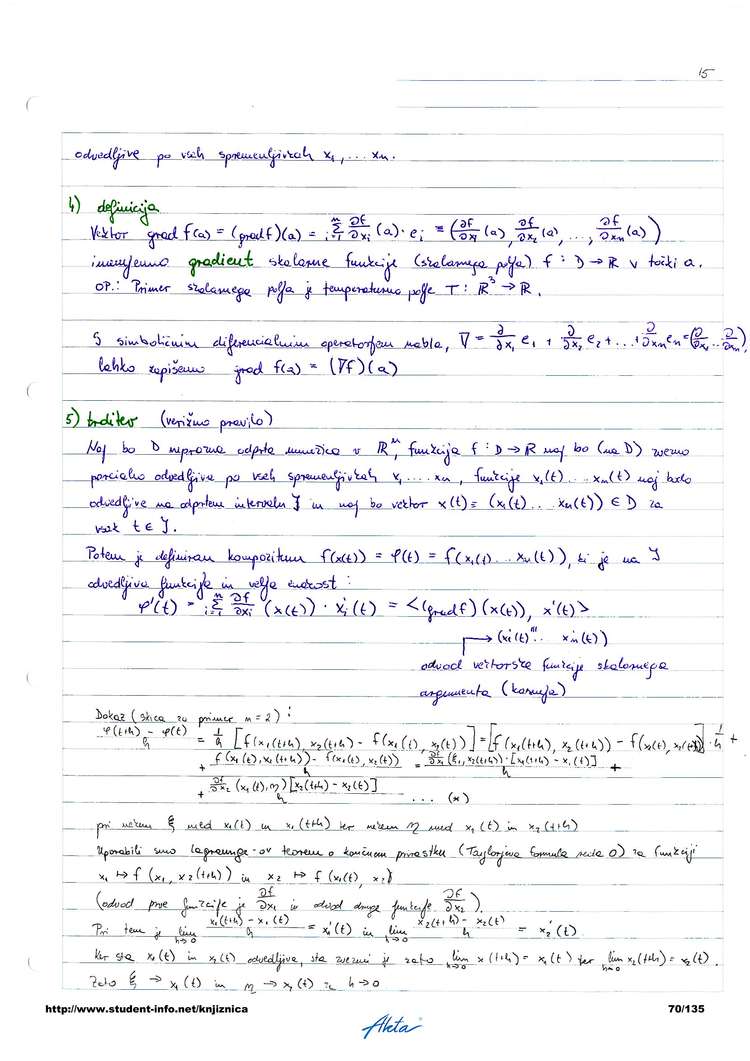 15
odvedljive po vseh spremenljivkah x₁, ... xₙ.
4) definicija
Vektor grad f(a) = (grad f)(a) = ᵢ₌₁Σⁿ ∂f/∂xᵢ (a) · eᵢ = (∂f/∂x₁ (a), ∂f/∂x₂ (a), ..., ∂f/∂xₙ (a))
imenujemo gradient skalarne funkcije (skalarnega polja) f : D → ℝ v točki a.
OP.: Primer skalarnega polja je temperaturno polje T : ℝ³ → ℝ.
S simboličnim diferencialnim operatorjem nabla, ∇ = ∂/∂x₁ e₁ + ∂/∂x₂ e₂ + ... + ∂/∂xₙ eₙ = (∂/∂x₁ ... ∂/∂xₙ),
lahko zapišemo grad f(a) = (∇f)(a)
5) trditev (verižno pravilo)
Naj bo D neprazna odprta množica v ℝⁿ, funkcija f : D → ℝ naj bo (na D) zvezno
parcialno odvedljiva po vseh spremenljivkah x₁ .... xₙ, funkcije x₁(t) ... xₙ(t) naj bodo
odvedljive na odprtem intervalu J in naj bo vektor x(t) = (x₁(t) ... xₙ(t)) ∈ D za
vsak t ∈ J.
Potem je definiran kompozitum f(x(t)) = φ(t) = f(x₁(t) ... xₙ(t)), ki je na J
odvedljiva funkcija in velja enakost :
φ'(t) = ᵢ₌₁Σⁿ ∂f/∂xᵢ (x(t)) · xᵢ'(t) = <(grad f)(x(t)), x'(t)>
→ (x₁'(t) ... xₙ'(t))
odvod vektorske funkcije skalarnega
argumenta (kasneje)
Dokaz (skica za primer n = 2) :
φ(t+h) - φ(t) / h = 1/h [f(x₁(t+h), x₂(t+h)) - f(x₁(t), x₂(t))] = [f(x₁(t+h), x₂(t+h)) - f(x₁(t), x₂(t+h))] · 1/h +
+ f(x₁(t), x₂(t+h)) - f(x₁(t), x₂(t)) / h = ∂f/∂x₁ (ξ, x₂(t+h)) · [x₁(t+h) - x₁(t)] / h +
+ ∂f/∂x₂ (x₁(t), η) [x₂(t+h) - x₂(t)] / h ... (*)
pri nekem ξ med x₁(t) in x₁(t+h) ter nekem η med x₂(t) in x₂(t+h)
Uporabili smo Lagrange-ov teorem o končnem prirastku (Taylorjeva formula reda 0) za funkciji
x₁ ↦ f(x₁, x₂(t+h)) in x₂ ↦ f(x₁(t), x₂)
(odvod prve funkcije je ∂f/∂x₁ in odvod druge funkcije ∂f/∂x₂).
Pri tem je lim h→0 x₁(t+h) - x₁(t) / h = x₁'(t) in lim h→0 x₂(t+h) - x₂(t) / h = x₂'(t)
Ker sta x₁(t) in x₂(t) odvedljiva, sta zvezni je zato lim h→0 x₁(t+h) = x₁(t) ter lim h→0 x₂(t+h) = x₂(t).
Zato ξ → x₁(t) in η → x₂(t) za h → 0
http://www.student-info.net/knjiznica 70/135
Akta